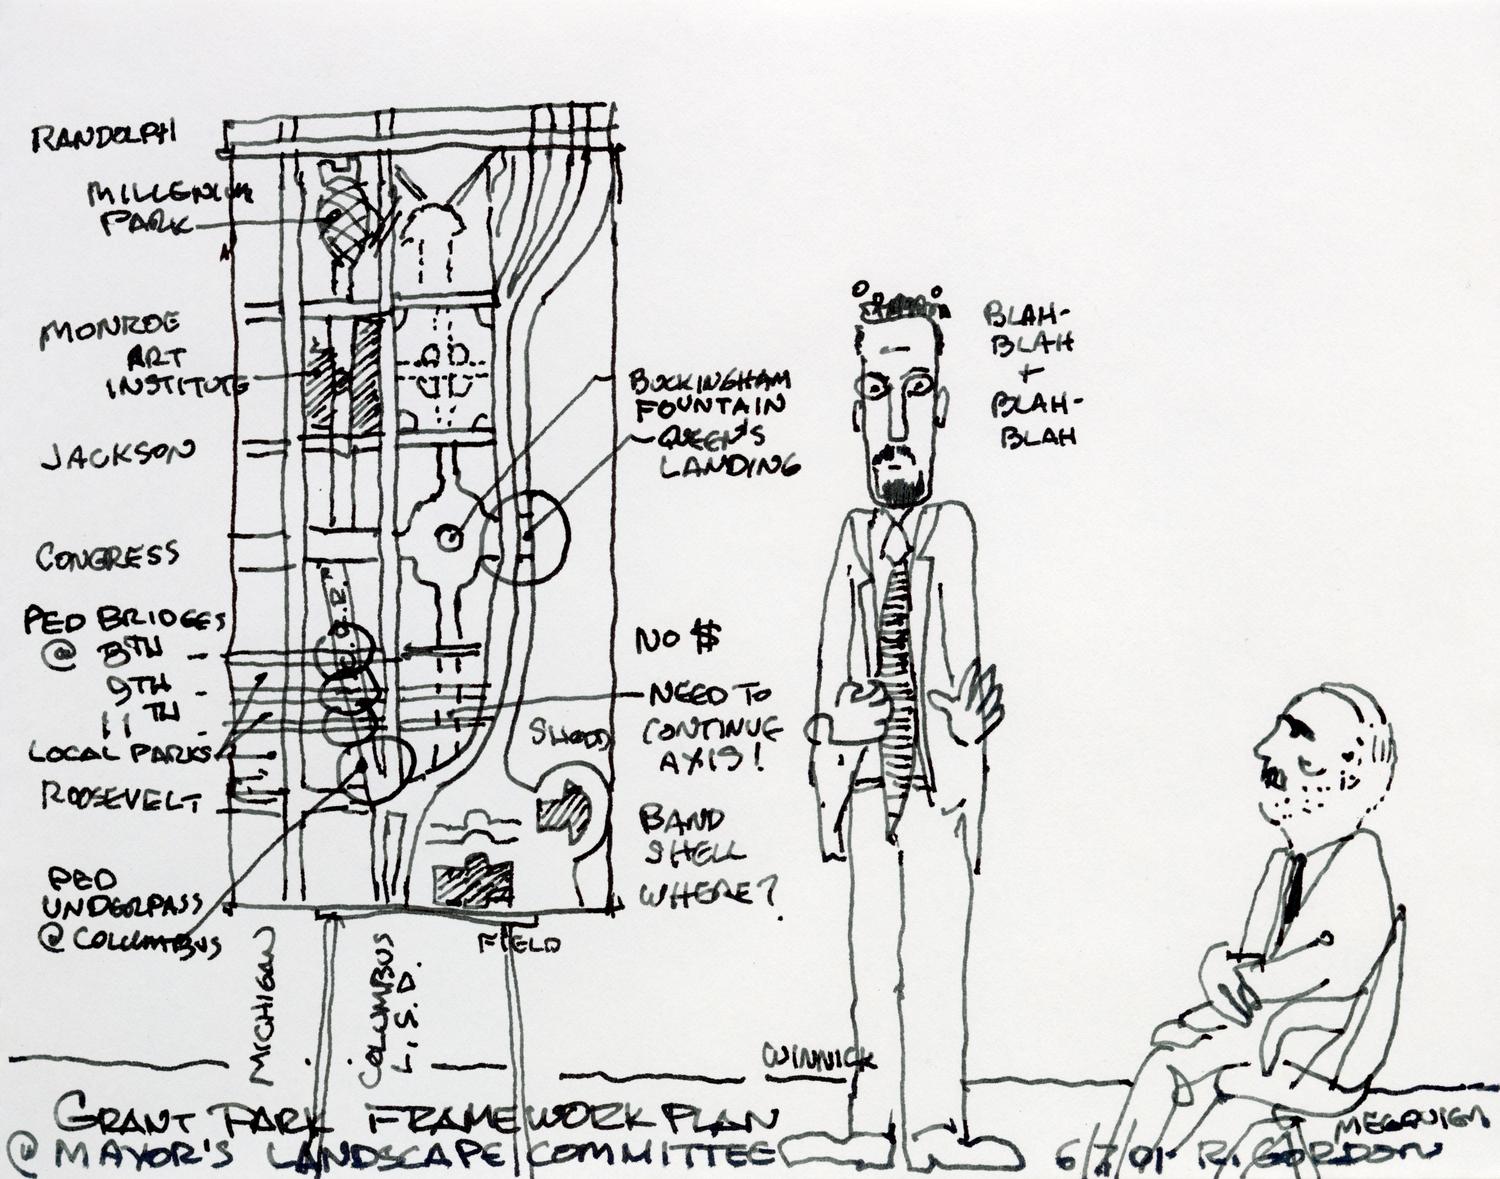 RANDOLPH
MILLENIUM
PARK
MONROE
ART
INSTITUTE
JACKSON
CONGRESS
PED BRIDGES
@ 8TH -
9TH -
11TH -
LOCAL PARKS
ROOSEVELT
PED
UNDERPASS
@ COLUMBUS
BUCKINGHAM
FOUNTAIN
QUEEN'S
LANDING
NO $
NEED TO
CONTINUE
AXIS!
SHEDD
BAND
SHELL
WHERE?
FIELD
MICHIGAN
COLUMBUS
L.S.D.
BLAH-
BLAH
+
BLAH-
BLAH
WINNICK
GRANT PARK FRAMEWORK PLAN
@ MAYOR'S LANDSCAPE COMMITTEE
6/7/01 R. GORDON